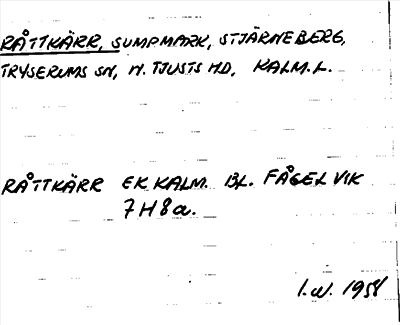 RÅTTKÄRR, SUMPMARK, STJÄRNEBERG,
TRYSERUMS SN, N. TJUSTS HD, KALM.L.
RÅTTKÄRR EK KALM. BL. FÅGELVIK
7H8a.
I.W. 1951